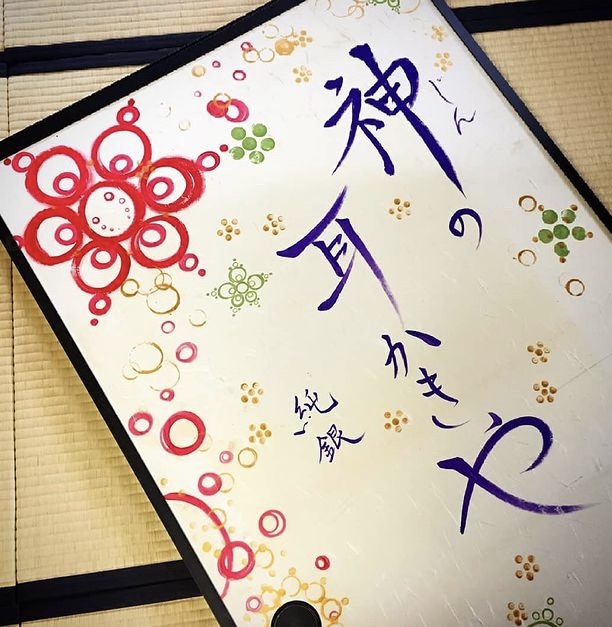 神の耳かきや
じん
純銀